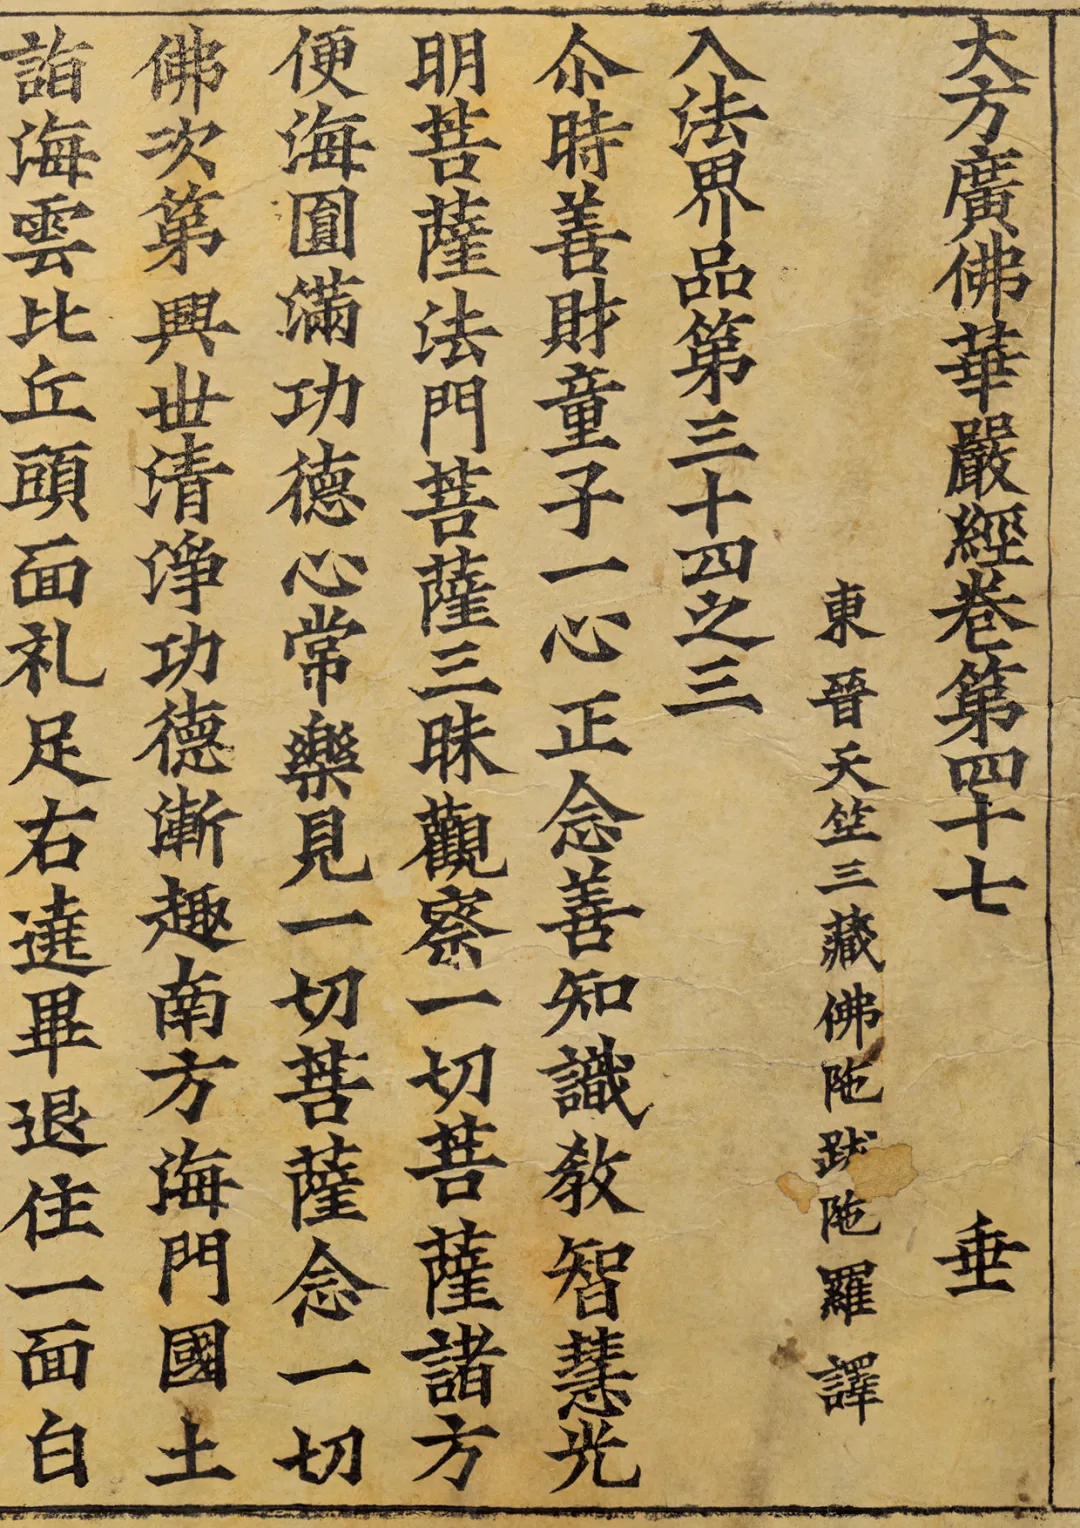 大方廣佛華嚴經卷第四十七　垂
東晉天竺三藏佛陁跋陁羅譯
入法界品第三十四之三
尒時善財童子一心正念善知識教智慧光
明菩薩法門菩薩三昧觀察一切菩薩諸方
便海圎滿功德心常樂見一切菩薩念一切
佛次第興世清淨功德漸趣南方海門國土
詣海雲比丘頭面礼足右遶畢退住一面白